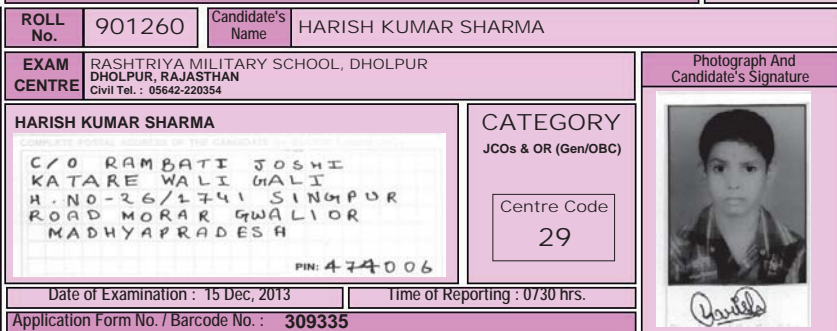 ROLL No.
901260
Candidate's Name
HARISH KUMAR SHARMA
EXAM CENTRE
RASHTRIYA MILITARY SCHOOL, DHOLPUR
DHOLPUR, RAJASTHAN
Civil Tel. : 05642-220354
Photograph And
Candidate's Signature
HARISH KUMAR SHARMA
COMPLETE POSTAL ADDRESS OF THE CANDIDATE
C/O RAMBATI JOSHI
KATARE WALI GALI
H.NO-26/1741 SINGPUR
ROAD MORAR GWALIOR
MADHYAPRADESH
PIN: 474006
CATEGORY
JCOs & OR (Gen/OBC)
Centre Code
29
Harish
Date of Examination : 15 Dec, 2013
Time of Reporting : 0730 hrs.
Application Form No. / Barcode No. : 309335